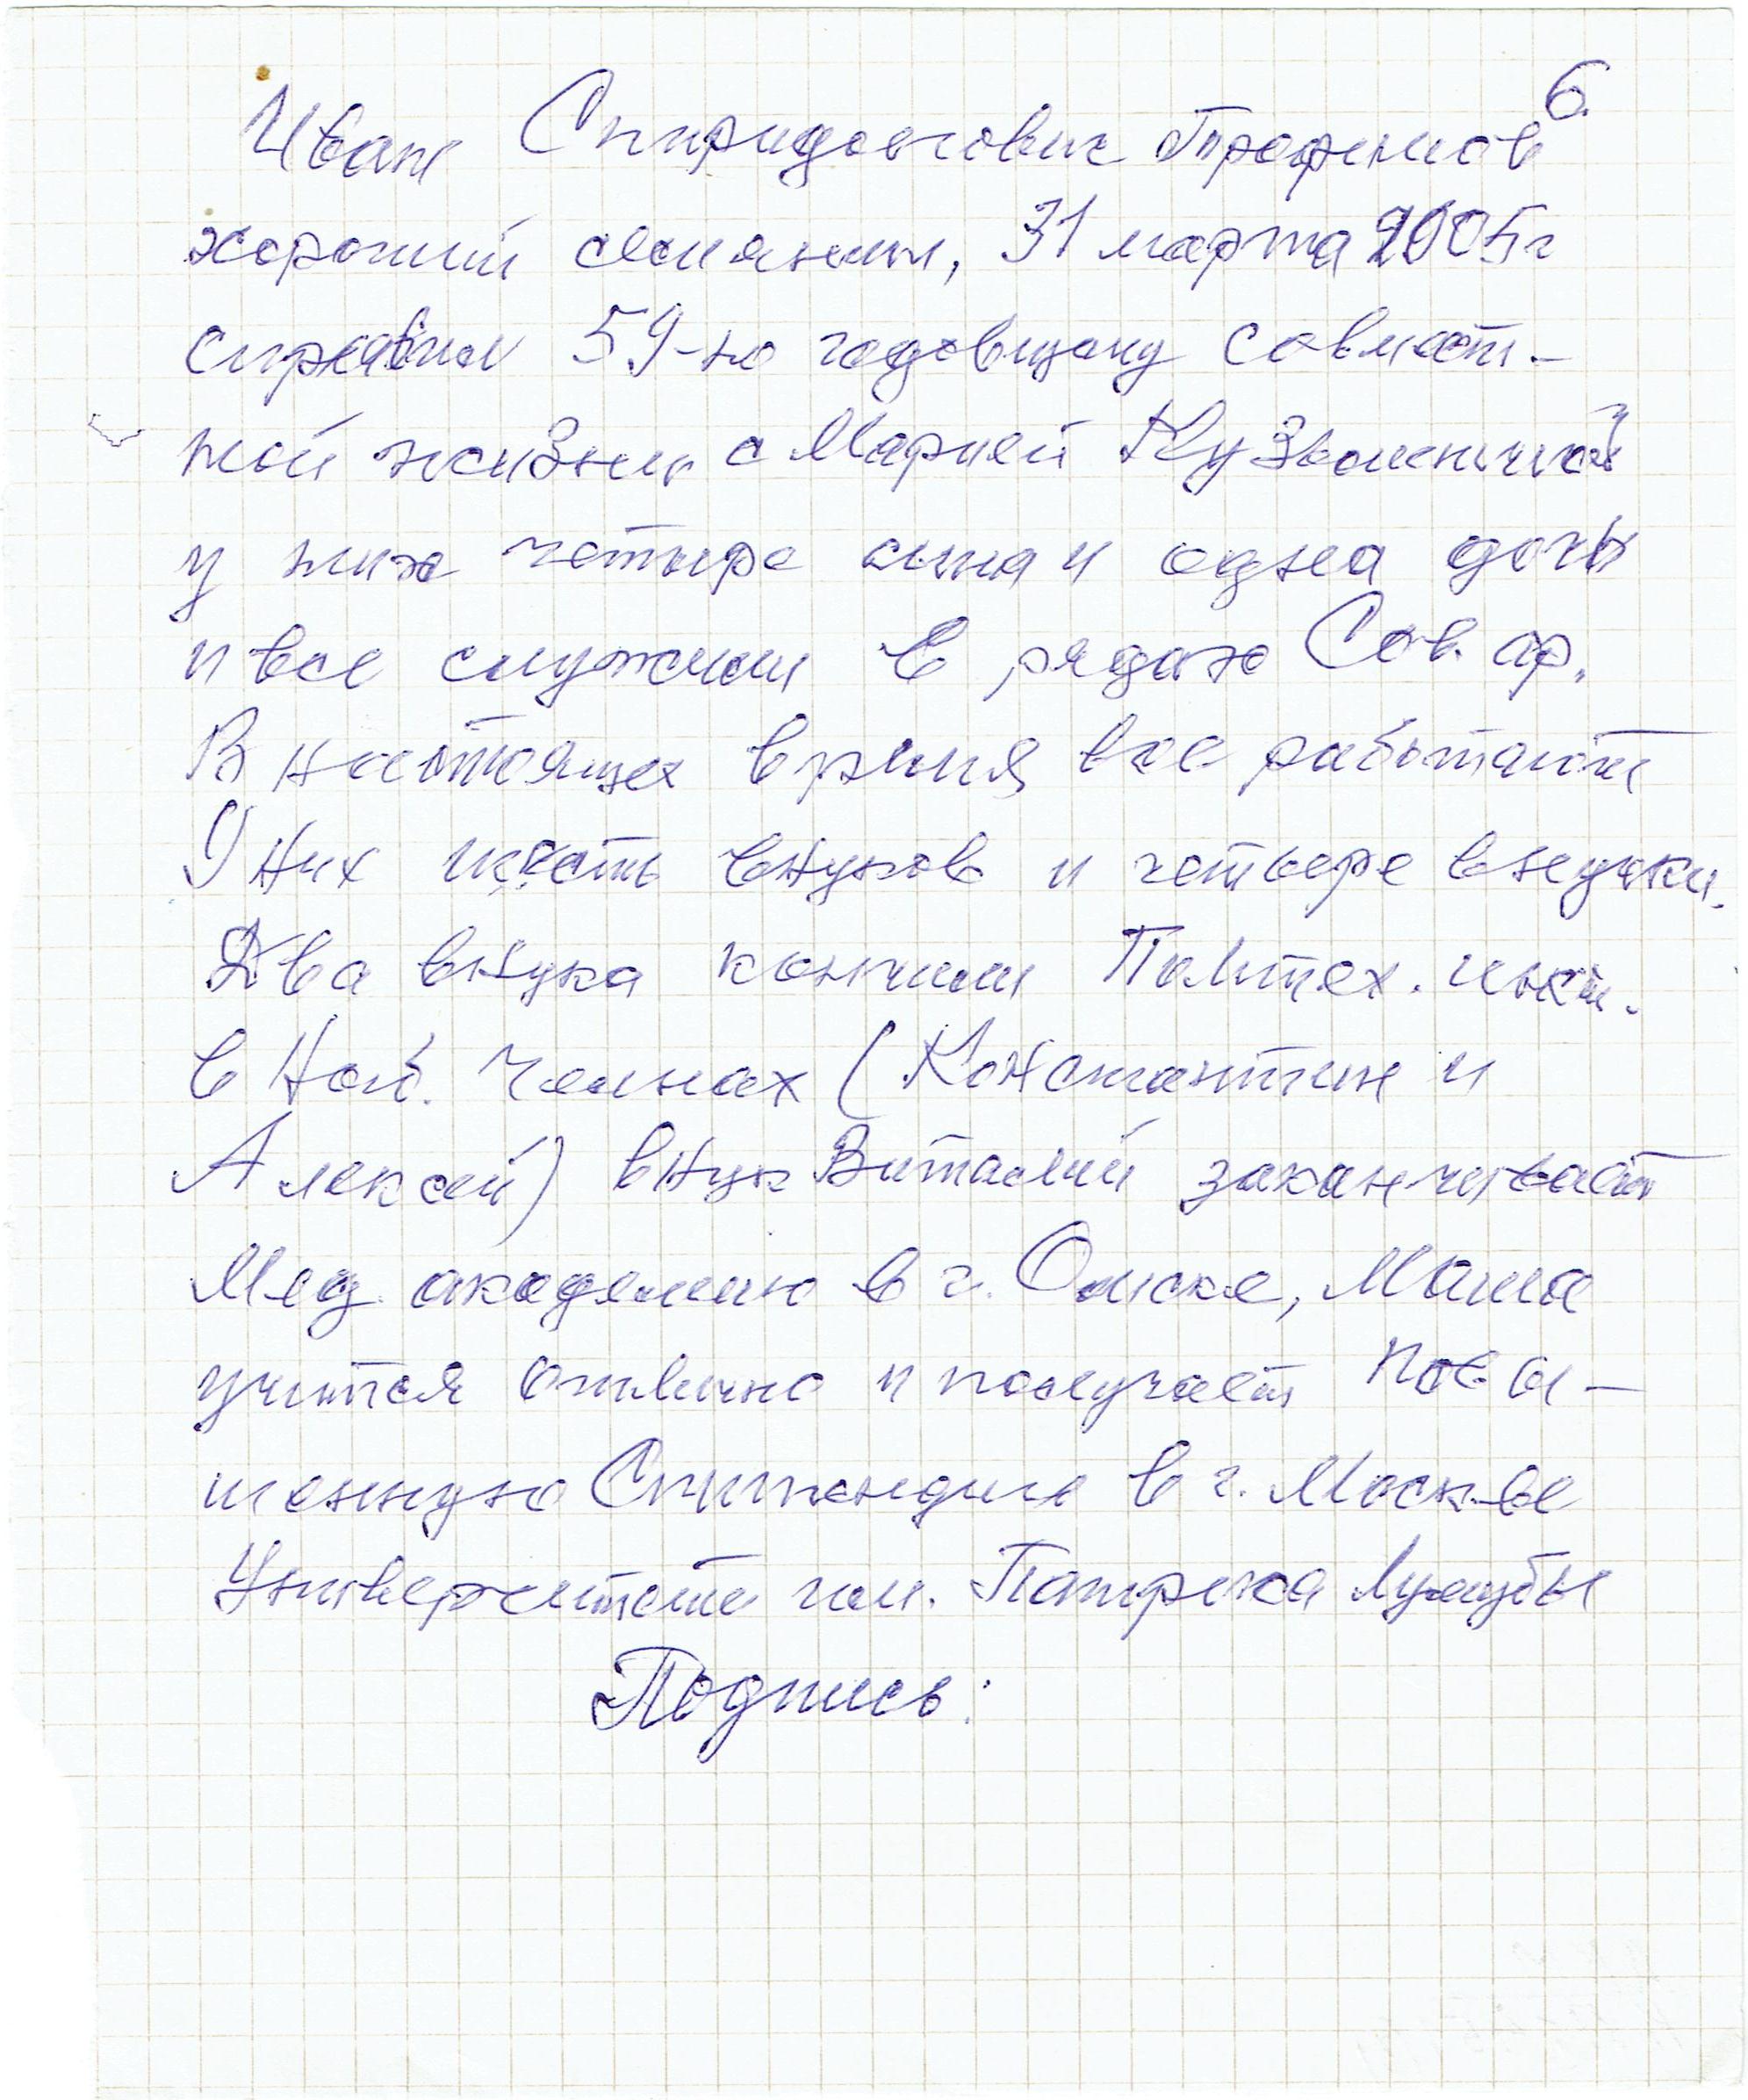 6.
Иван Спиридонович Трофимов
хороший семьянин, 31 марта 2005 г
справил 59-ю годовщину совмест-
ной жизни с Марией Кузьминичной
у них четыре сына и одна дочь
и все служили в рядах Сов. ар.
В настоящее время все работают
У них шесть внуков и четыре внучки.
Два внука кончили Политех. инст.
в Наб. Челнах (Константин и
Алексей) внук Виталий заканчивает
Мед. академию в г. Омске, Маша
учится отлично и получает повы-
шенную Стипендию в г. Москве
Университете им. Патриса Лумумбы
Подпись: